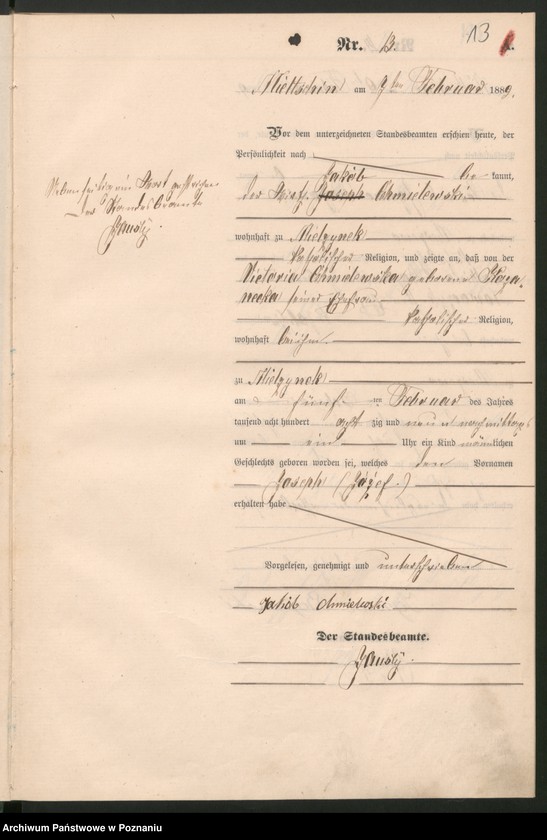 13
Nr. 13.
Mieltschin am 9ten Februar 1889.
Vor dem unterzeichneten Standesbeamten erschien heute, der
Persönlichkeit nach
Jakób be kannt,
der Joseph Chmielewski
Ein Wort gestrichen
Der Standesbeamte
wohnhaft zu Mielzynek
katholischer Religion, und zeigte an, daß von der
Victoria Chmielewska geborene
seiner Ehefrau
katholischer Religion,
wohnhaft bei ihm
zu Mielzynek
am fünf ten Februar des Jahres
tausend acht hundert acht zig und neun nachmittags
um ein Uhr ein Kind männlichen
Geschlechts geboren worden sei, welches den Vornamen
Joseph (Józef)
erhalten habe
Vorgelesen, genehmigt und unterschrieben
Jakób Chmielewski
Der Standesbeamte.
Archiwum Państwowe w Poznaniu